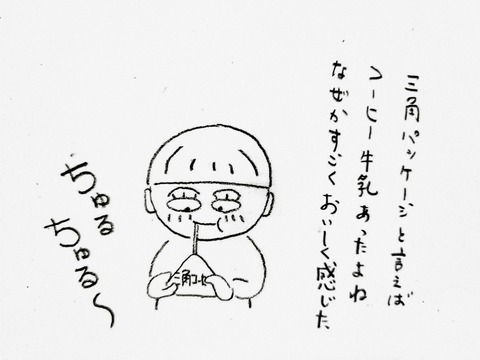 三角パッケージと言えば
コーヒー牛乳あったよね
なぜかすごくおいしく感じた
三角コーヒー
ちゅる
ちゅる〜